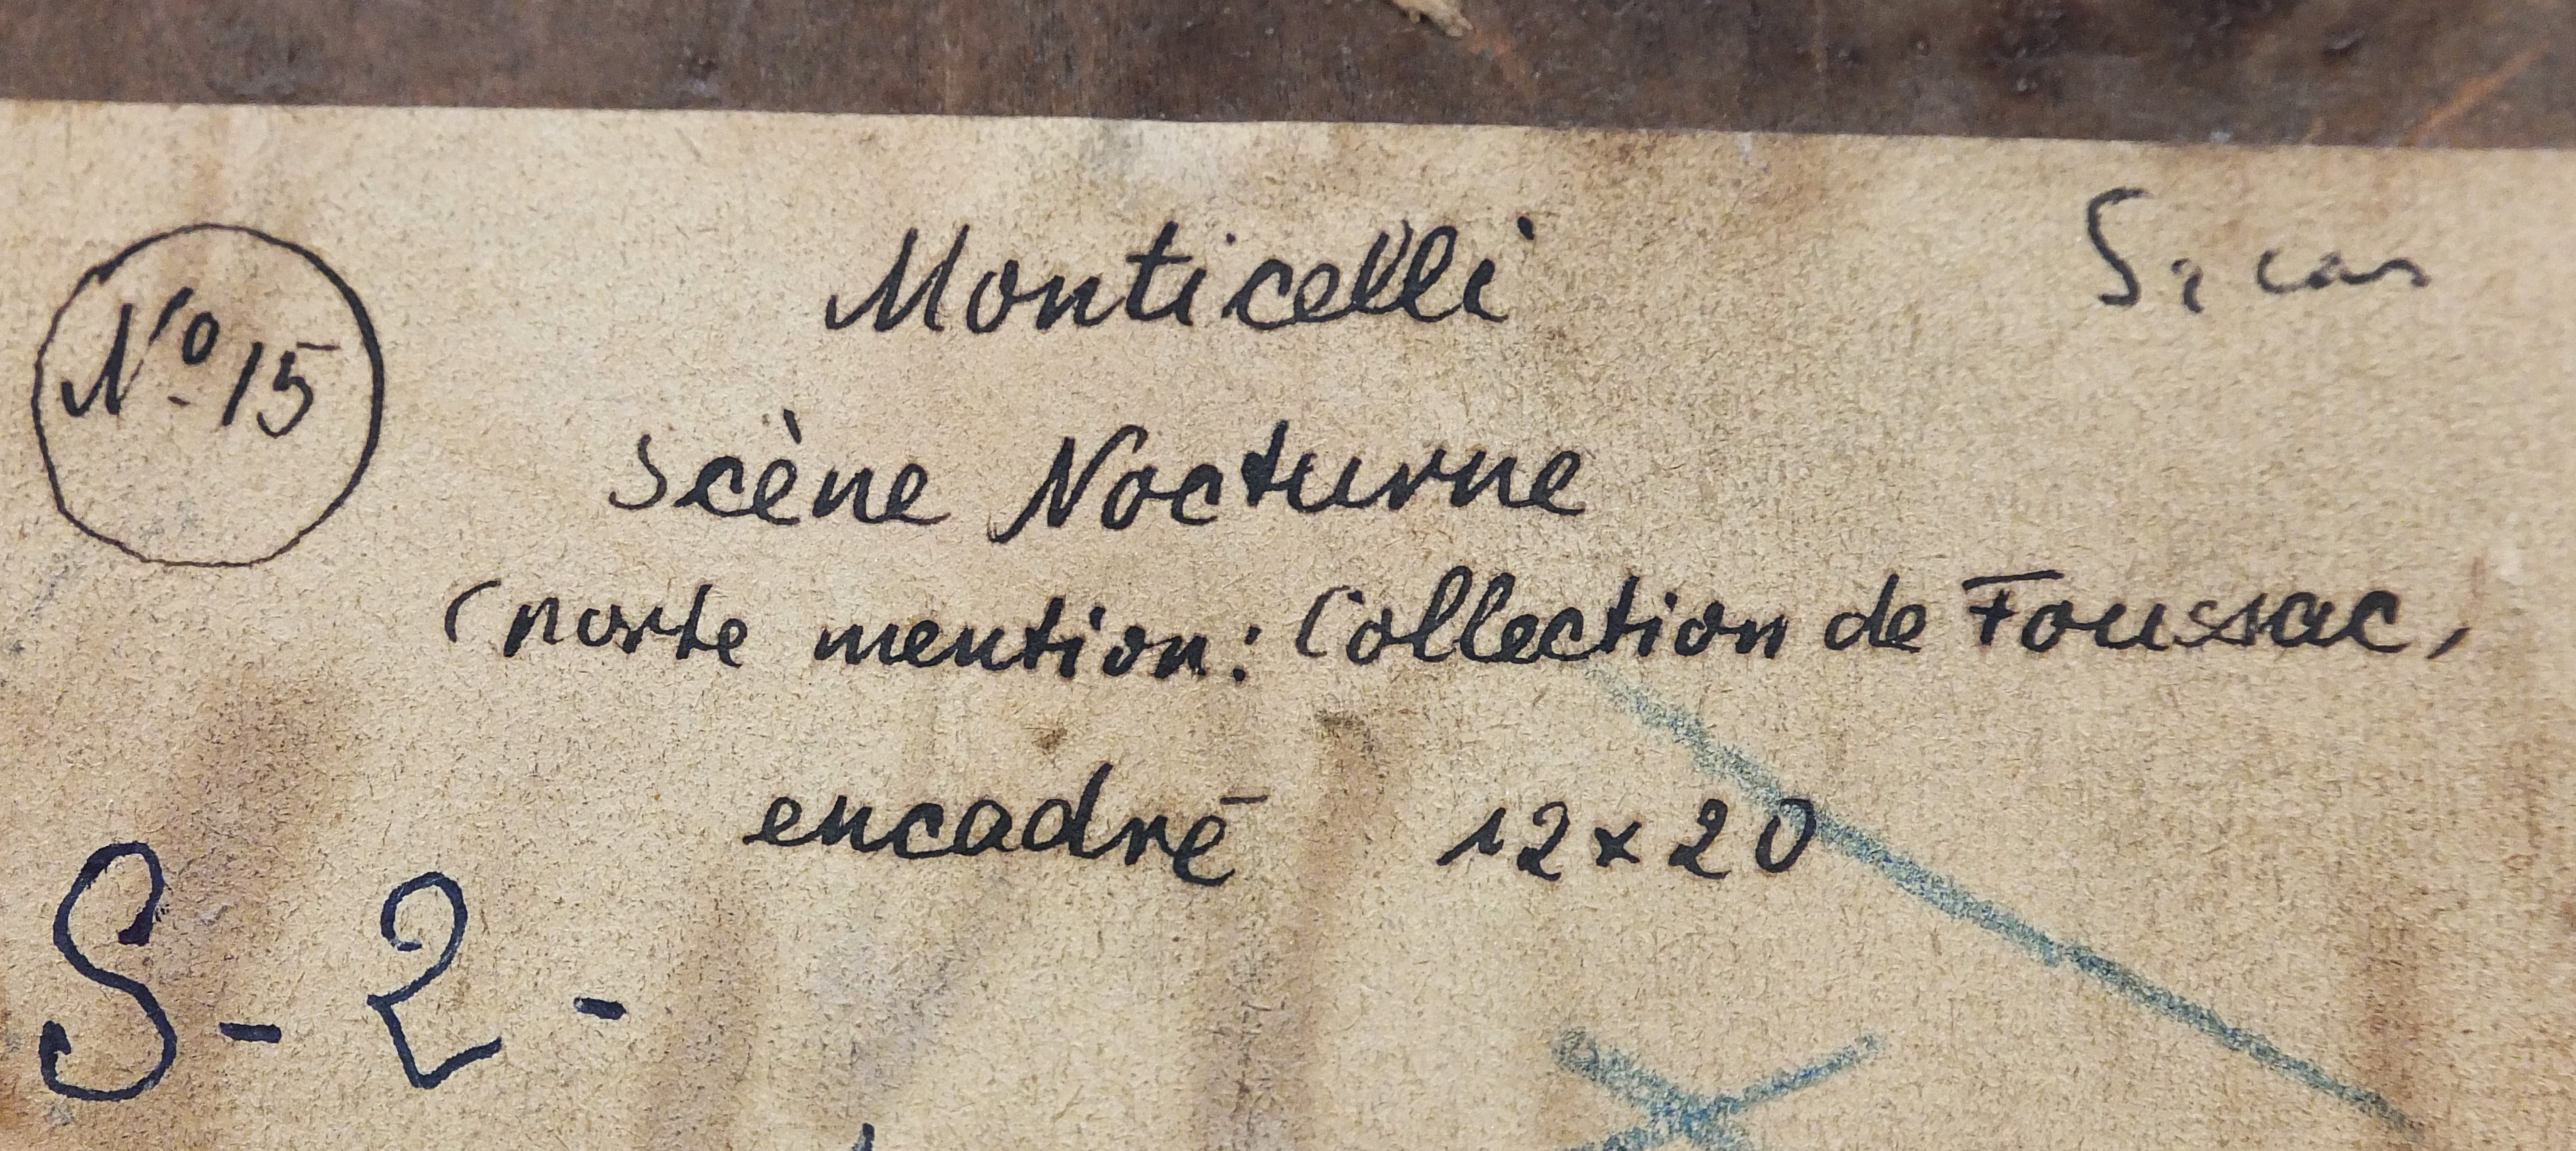 Monticelli
Nº 15
Scène Nocturne
(porte mention: Collection de Foussac,
encadré 12 x 20
S - 2 -